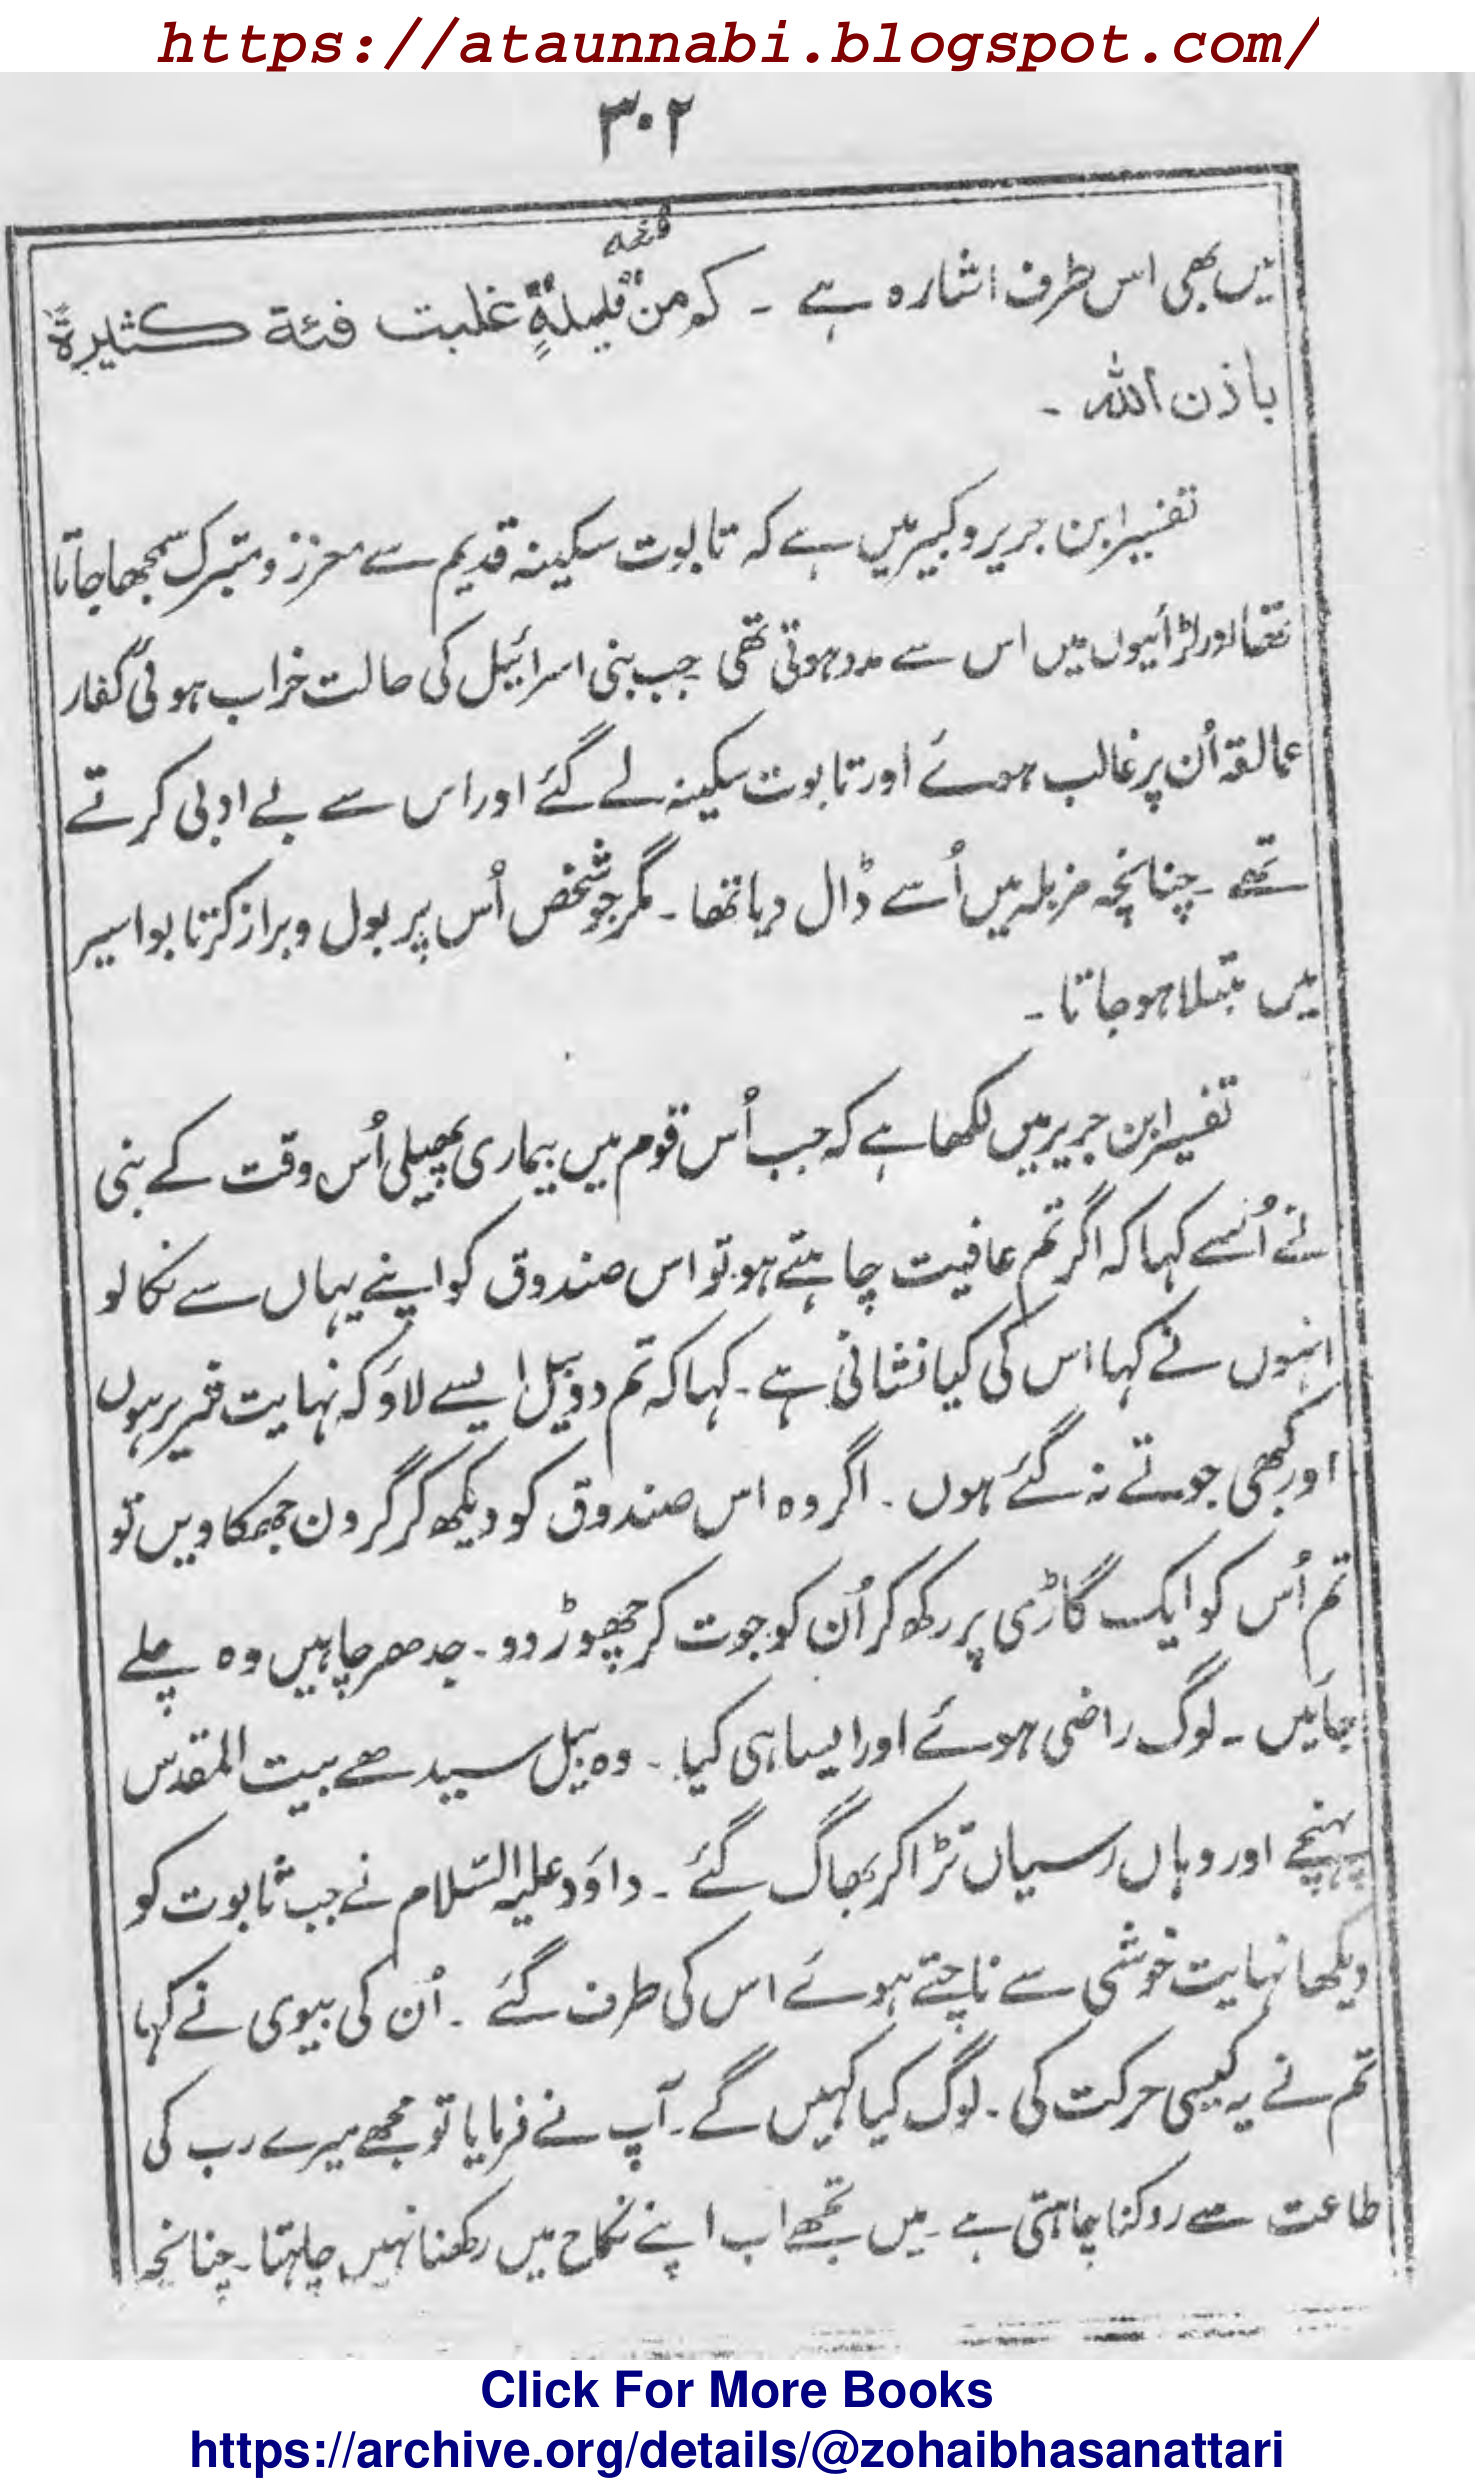 https://ataunnabi.blogspot.com/
۳۰۲
فئۃ
میں بھی اس طرف اشارہ ہے ۔ کم من قلیلةٍ غلبت فئة كثيرةً
باذن الله ۔
تفسیر ابن جریر و کبیر میں ہے کہ تابوت سکینہ قدیم سے معزز و متبرک سمجھا جاتا
تھا اور لڑائیوں میں اس سے مدد ہوتی تھی جب بنی اسرائیل کی حالت خراب ہوئی کفار
عمالقہ اُن پر غالب ہوئے اور تابوت سکینہ لے گئے اور اس سے بے ادبی کرتے
تھے ۔ چنانچہ مزبلہ میں اُسے ڈال دیا تھا ۔ مگر جو شخص اُس پر بول و براز کرتا بواسیر
میں مبتلا ہو جاتا ۔
تفسیر ابن جریر میں لکھا ہے کہ جب اُس قوم میں بیماری پھیلی اُس وقت کے بنی
نے اُنسے کہا کہ اگر تم عافیت چاہتے ہو تو اس صندوق کو اپنے یہاں سے نکالو
انہوں نے کہا اس کی کیا نشانی ہے ۔ کہا کہ تم دو بیل ایسے لاؤ کہ نہایت شریر ہوں
اور کبھی جوتے نہ گئے ہوں ۔ اگر وہ اس صندوق کو دیکھ کر گردن جھکا دیں تو
تم اُس کو ایک گاڑی پر رکھ کر اُن کو جوت کر چھوڑ دو ۔ جدھر چاہیں وہ چلے
جائیں ۔ لوگ راضی ہوئے اور ایسا ہی کیا ۔ وہ بیل سیدھے بیت المقدس
پہنچے اور وہاں رسیاں تڑا کر بھاگ گئے ۔ داؤد علیہ السّلام نے جب تابوت کو
دیکھا نہایت خوشی سے ناچتے ہوئے اس کی طرف گئے ۔ اُن کی بیوی نے کہا
تم نے یہ کیسی حرکت کی ۔ لوگ کیا کہیں گے ۔ آپ نے فرمایا تو مجھے میرے رب کی
طاعت سے روکنا چاہتی ہے ۔ میں تجھے اب اپنے نکاح میں رکھنا نہیں چاہتا ۔ چنانچہ
Click For More Books
https://archive.org/details/@zohaibhasanattari